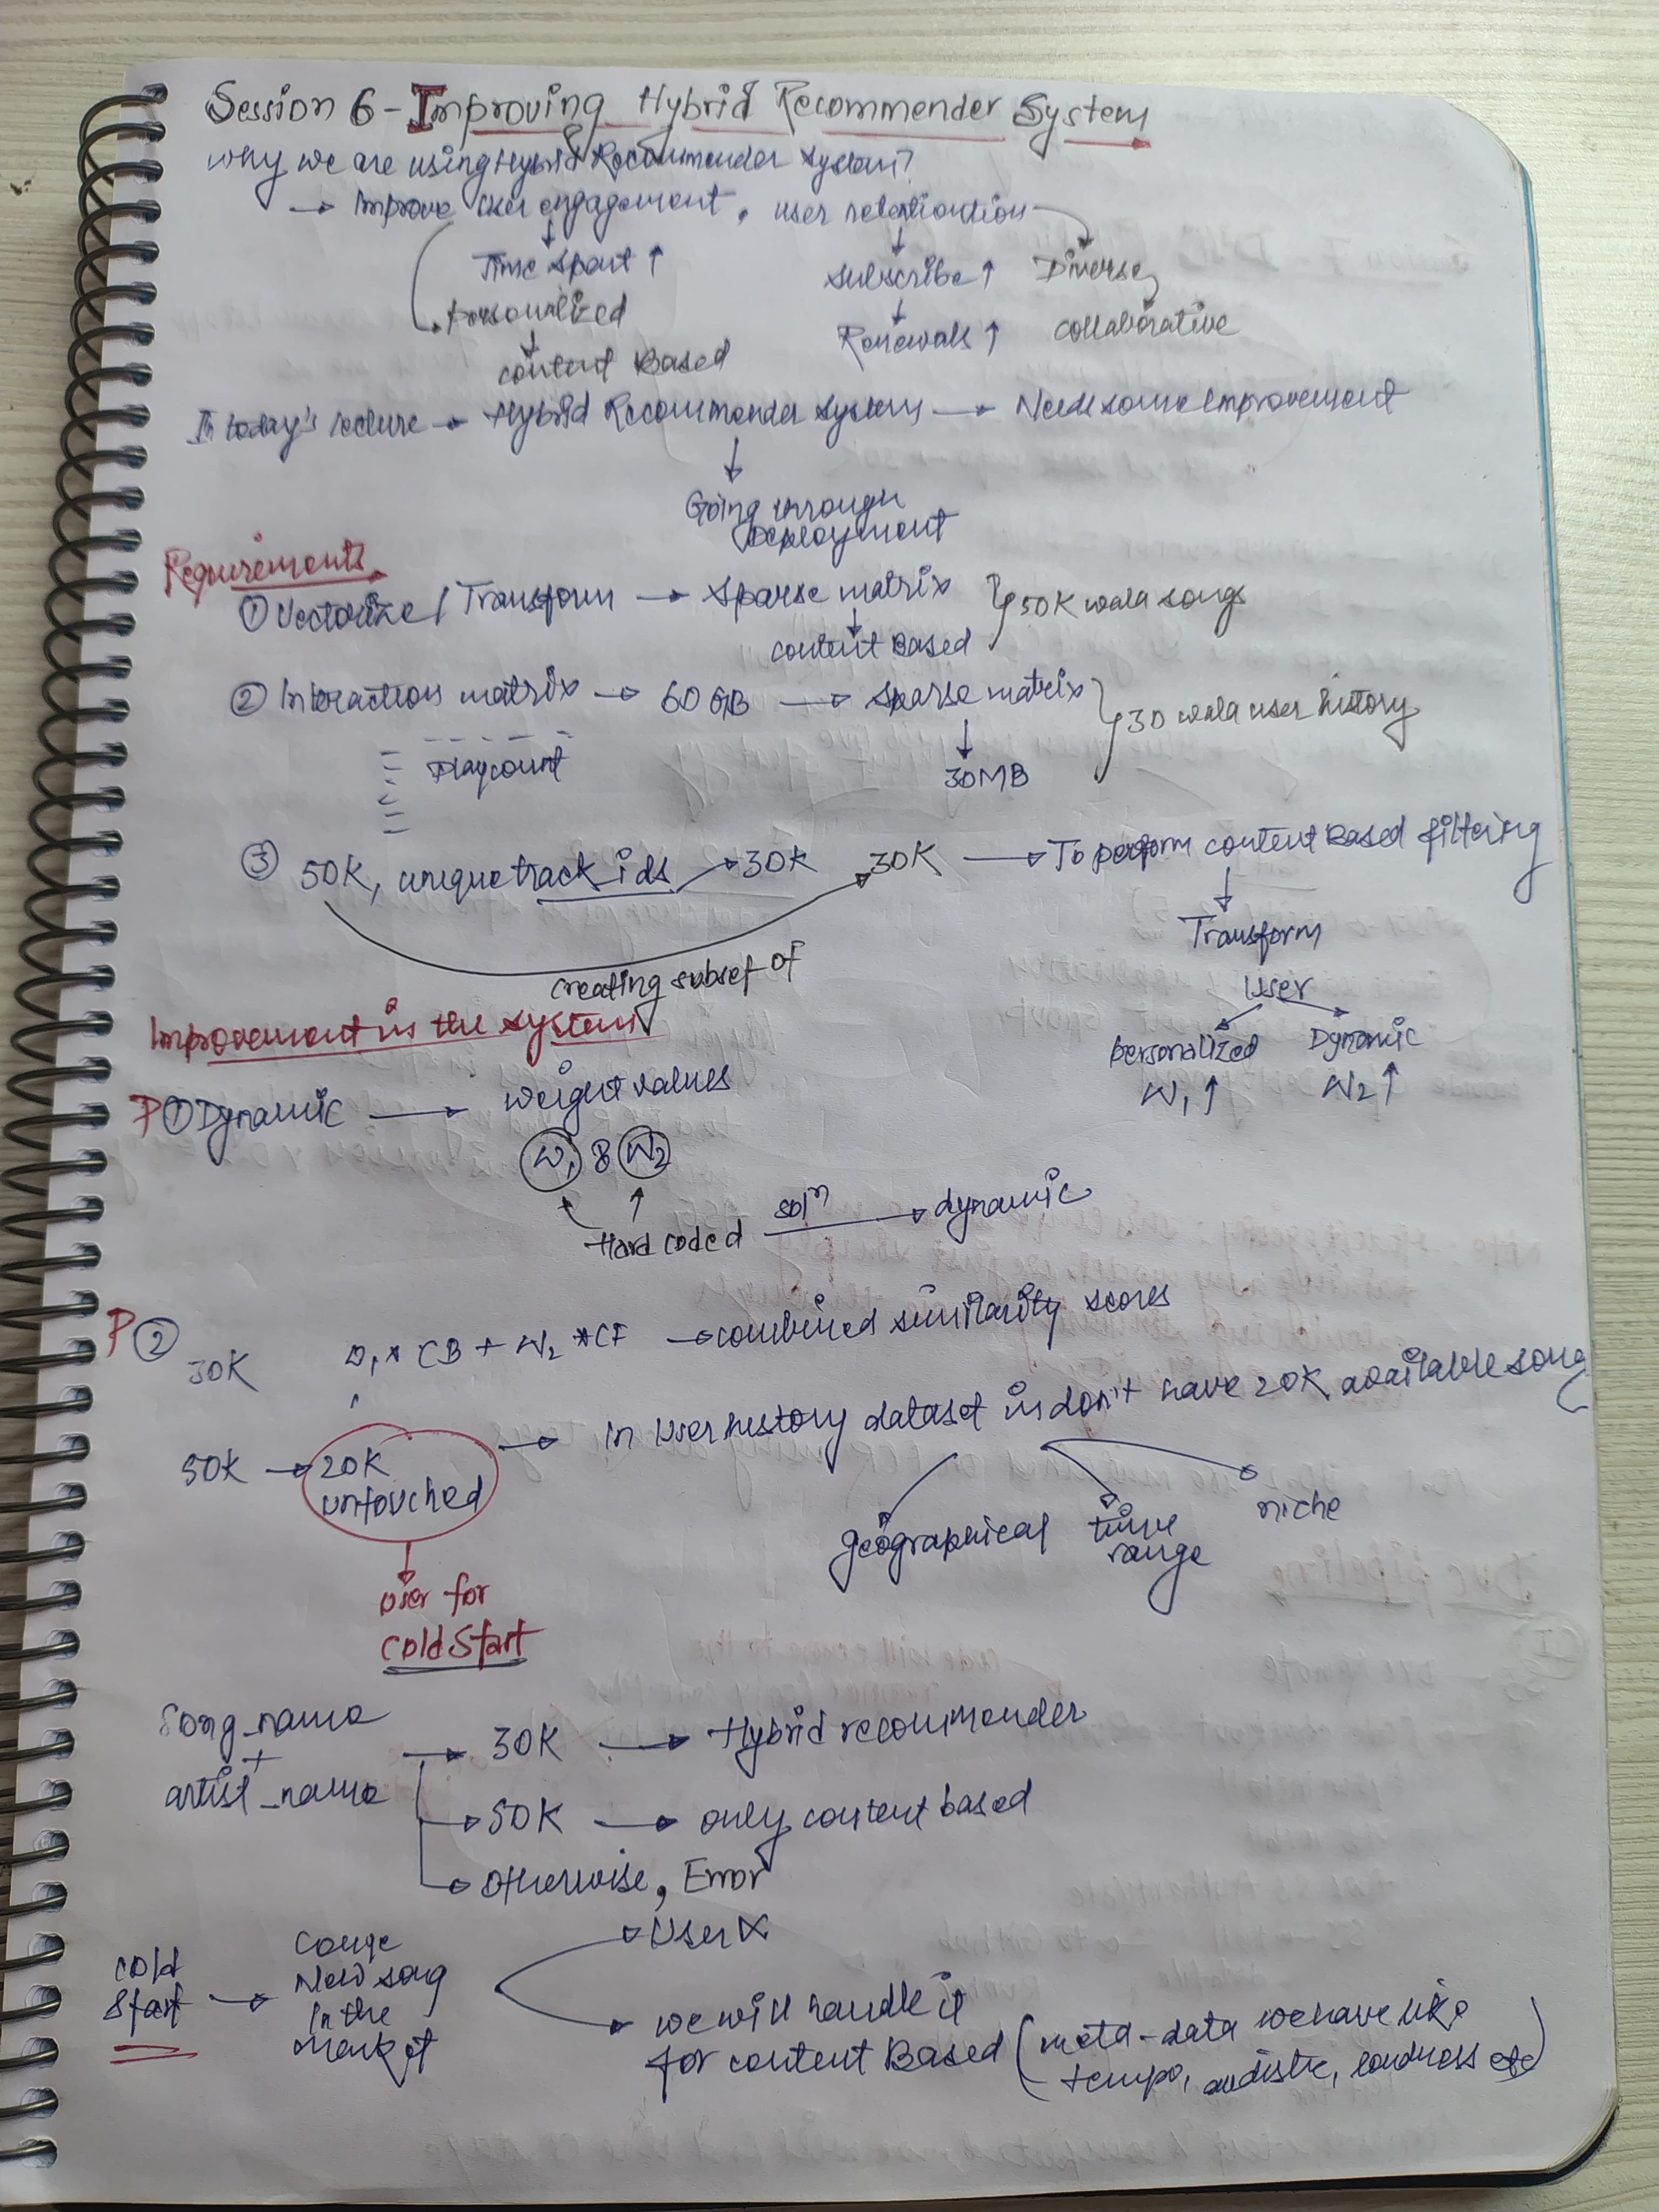 Session 6 - Improving Hybrid Recommender System
Why we are using Hybrid Recommender System?
→ Improve user engagement, user retentiontion
Time Spent ↑
Subscribe ↑
Diverse
Personalized
Renewals ↑
collaborative
content Based
In today's lecture → Hybrid Recommender System → Need some Improvement
Going through
Deployment
Requirements
① Vectorize / Transform → Sparse matrix } 50K wala songs
content Based
② Interaction matrix → 60 GB → sparse matrix } 30 wala user history
Playcount
30MB
③ 50K, unique track ids → 30K 30K → To perform content Based filtering
Transform
creating subset of
User
Improvement in the system
personalized
Dynamic
W1 ↑
W2 ↑
P ① Dynamic → weight values
W1 & W2
Hard coded solⁿ → dynamic
P ②
30K W1 * CB + W2 * CF → combined similarity scores
50K → 20K
untouched
→ In User history dataset is don't have 20K available song
geographical
time
range
niche
User for
Cold Start
Song_name
+
artist_name
→ 30K → Hybrid recommender
→ 50K → only content based
→ Otherwise, Error
→ User X
Cold
Start
→
Come
New song
In the
market
→ we will handle it
for content Based (meta-data we have like
tempo, loudness etc)